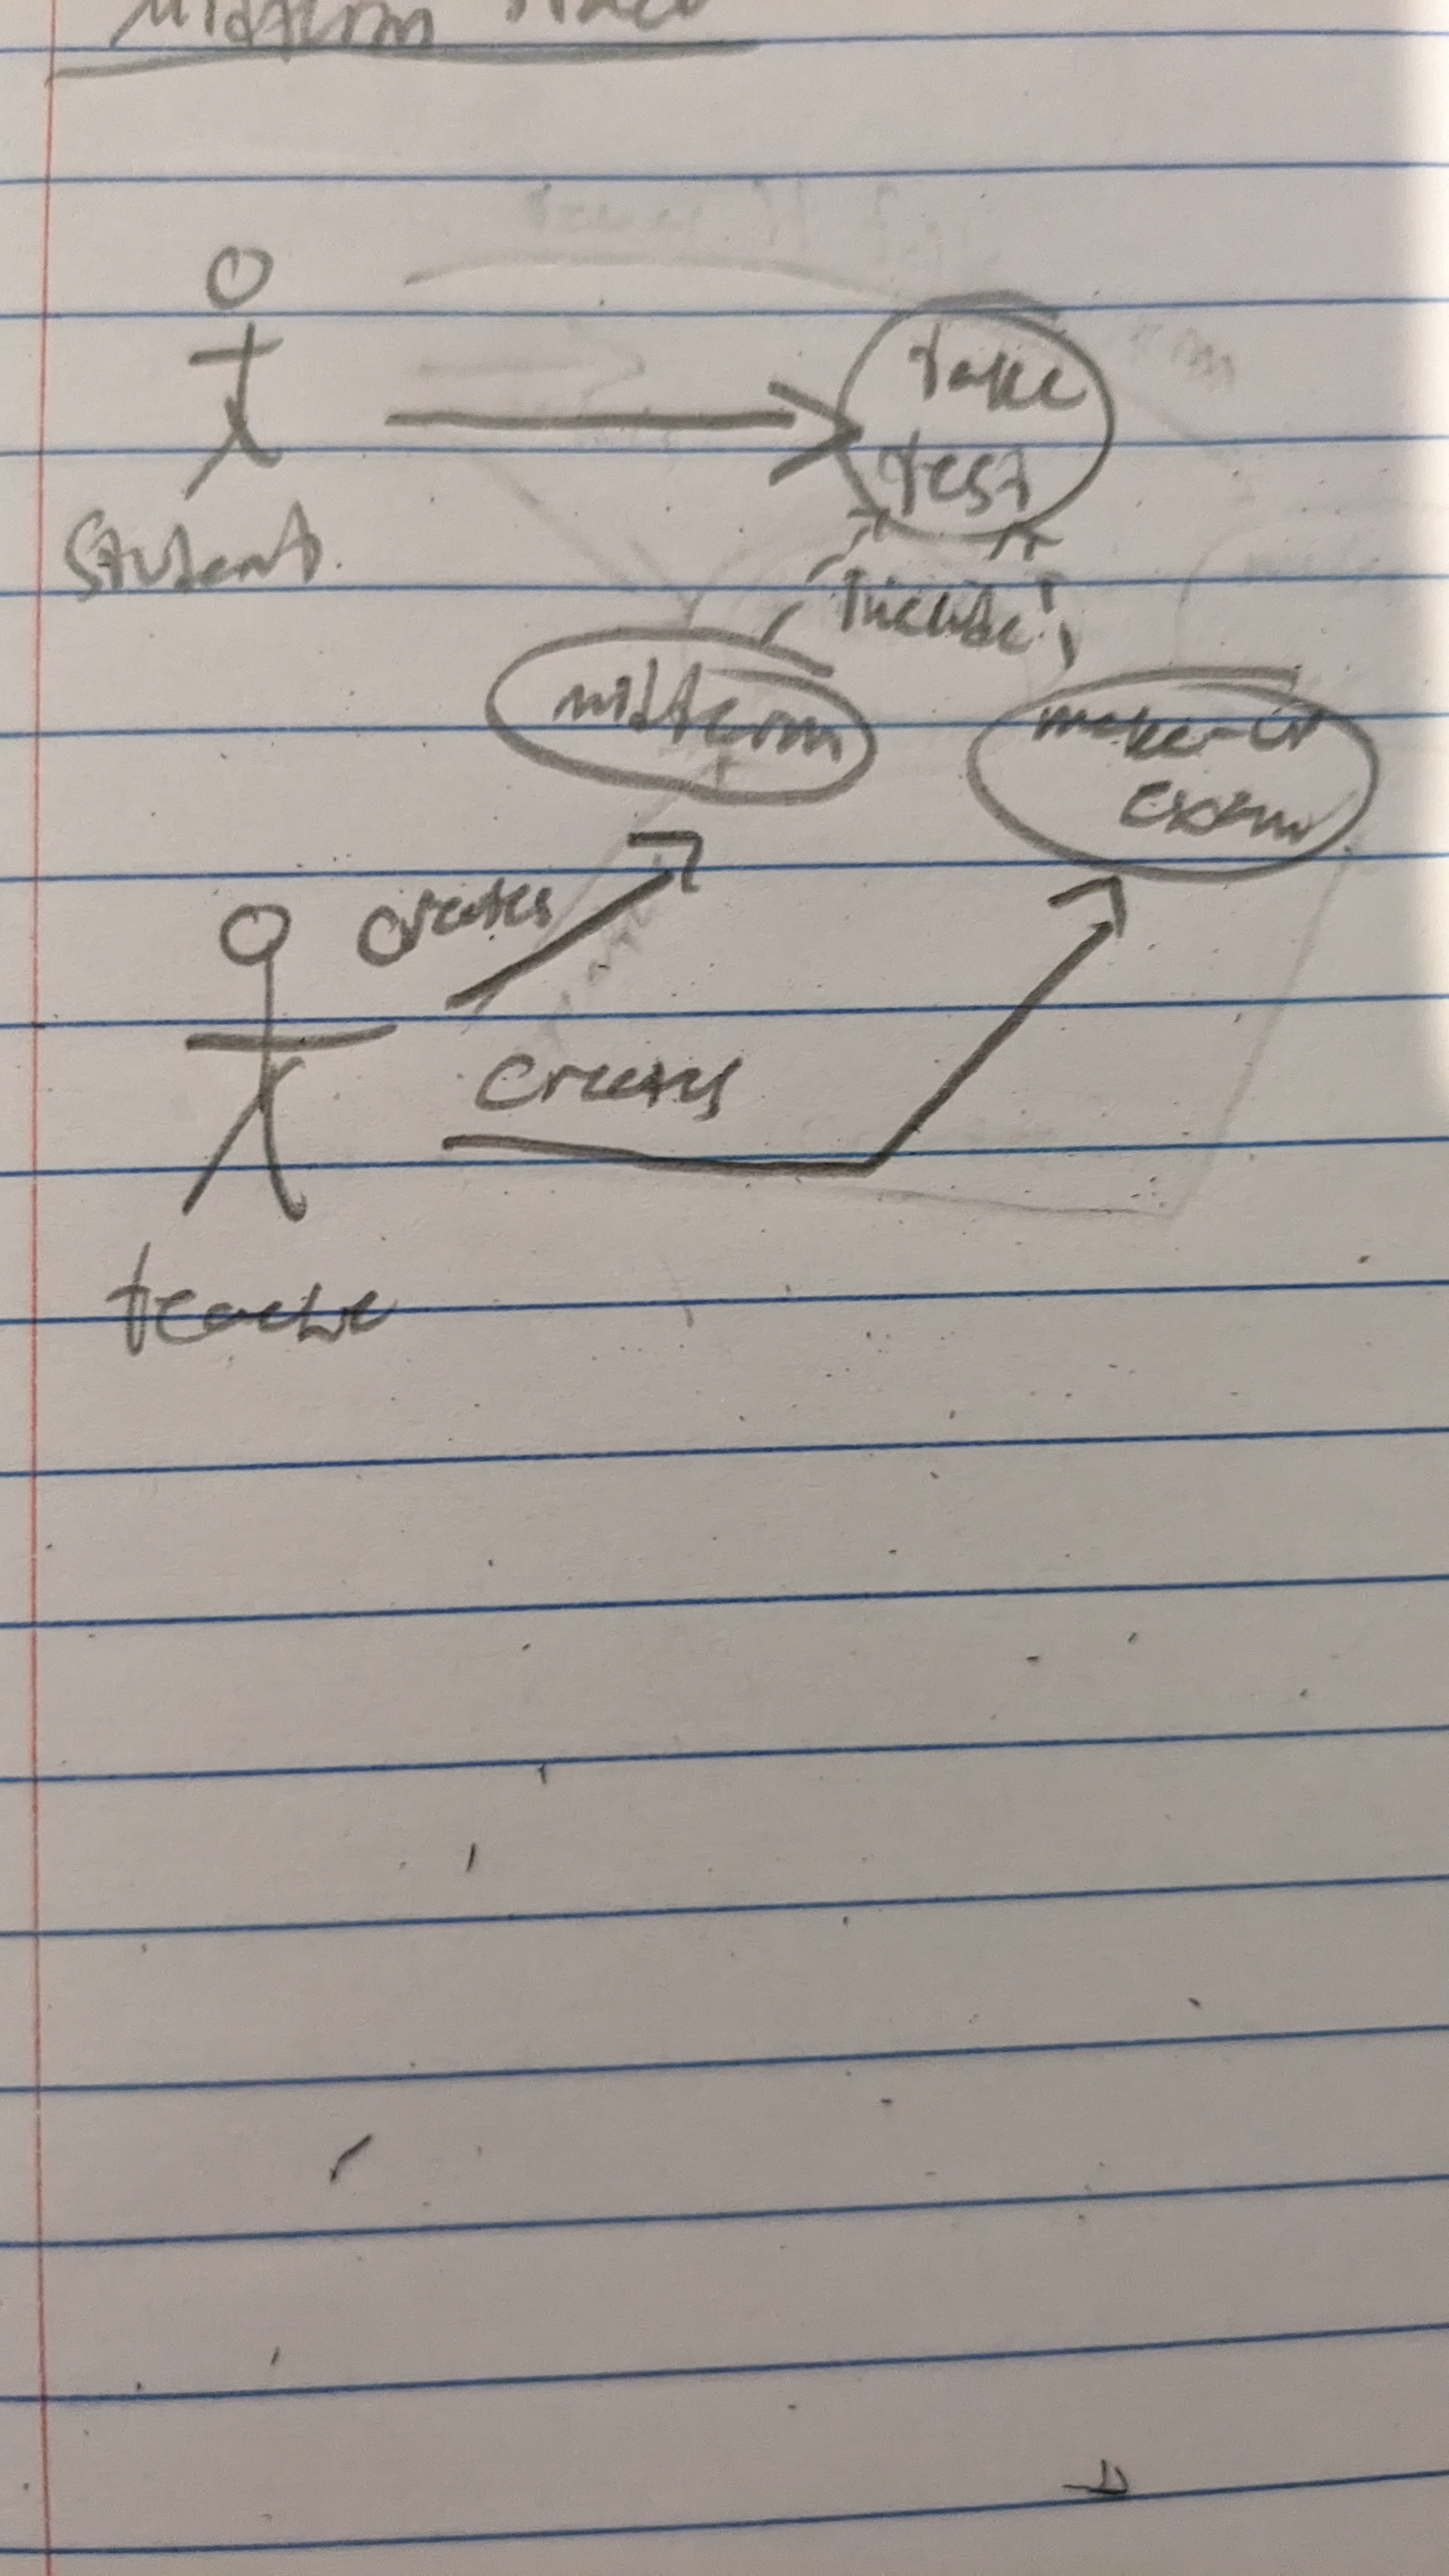 Midterm
Student
take
test
include
midterm
make-up
exam
creates
creates
teache